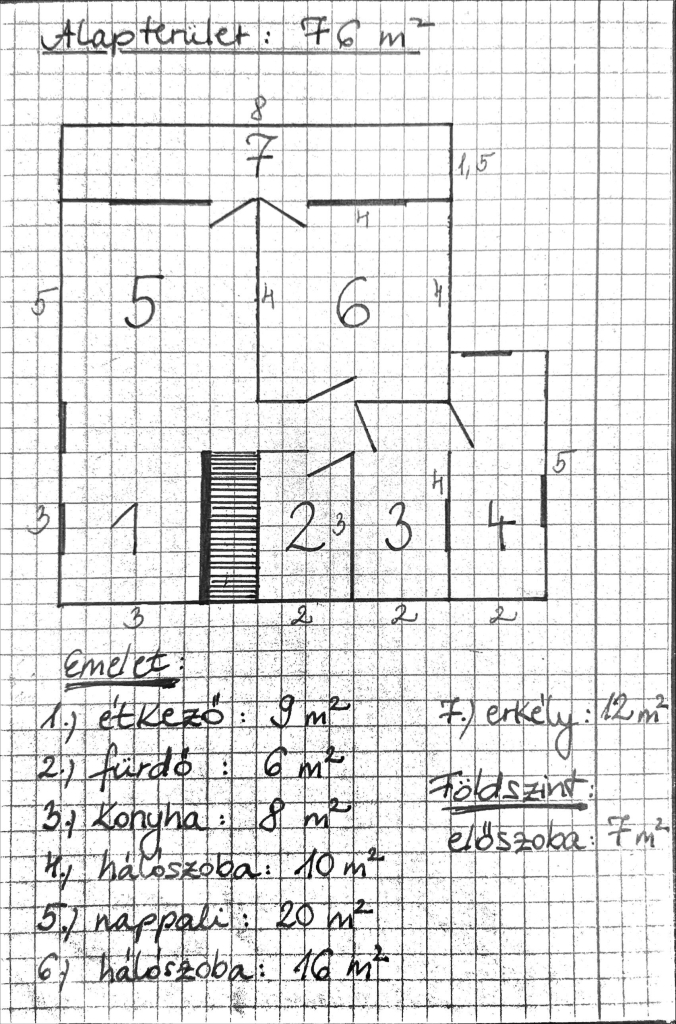 Alapterület: 76 m²
8
7
1,5
4
5
5
4
6
4
5
3
1
2
3
3
4
4
3
2
2
2
Emelet:
1.) étkező: 9 m²
2.) fürdő: 6 m²
3.) Konyha: 8 m²
4.) hálószoba: 10 m²
5.) nappali: 20 m²
6.) hálószoba: 16 m²
7.) erkély: 12 m²
Földszint:
előszoba: 7 m²